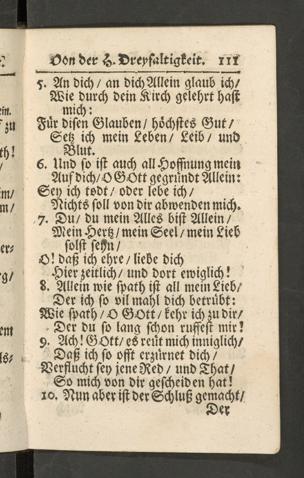 Von der H. Dreyfaltigkeit. 111
5. An dich / an dich Allein glaub ich /
Wie durch dein Kirch gelehrt hast
mich:
Für disen Glauben / höchstes Gut /
Setz ich mein Leben / Leib / und
Blut.
6. Und so ist auch all Hoffnung mein
Auf dich / O GOtt gegründt Allein:
Sey ich todt / oder lebe ich /
Nichts soll von dir abwenden mich.
7. Du / du mein Alles bist Allein /
Mein Hertz / mein Seel / mein Lieb
solst seyn /
O! daß ich ehre / liebe dich
Hier zeitlich / und dort ewiglich!
8. Allein wie spath ist all mein Lieb /
Der ich so vil mahl dich betrübt:
Wie spath / O GOtt / kehr ich zu dir /
Der du so lang schon ruffest mir!
9. Ach! GOtt / es reüt mich inniglich /
Daß ich so offt erzürnet dich /
Verflucht sey jene Red / und That /
So mich von dir gescheiden hat!
10. Nun aber ist der Schluß gemacht /
Der